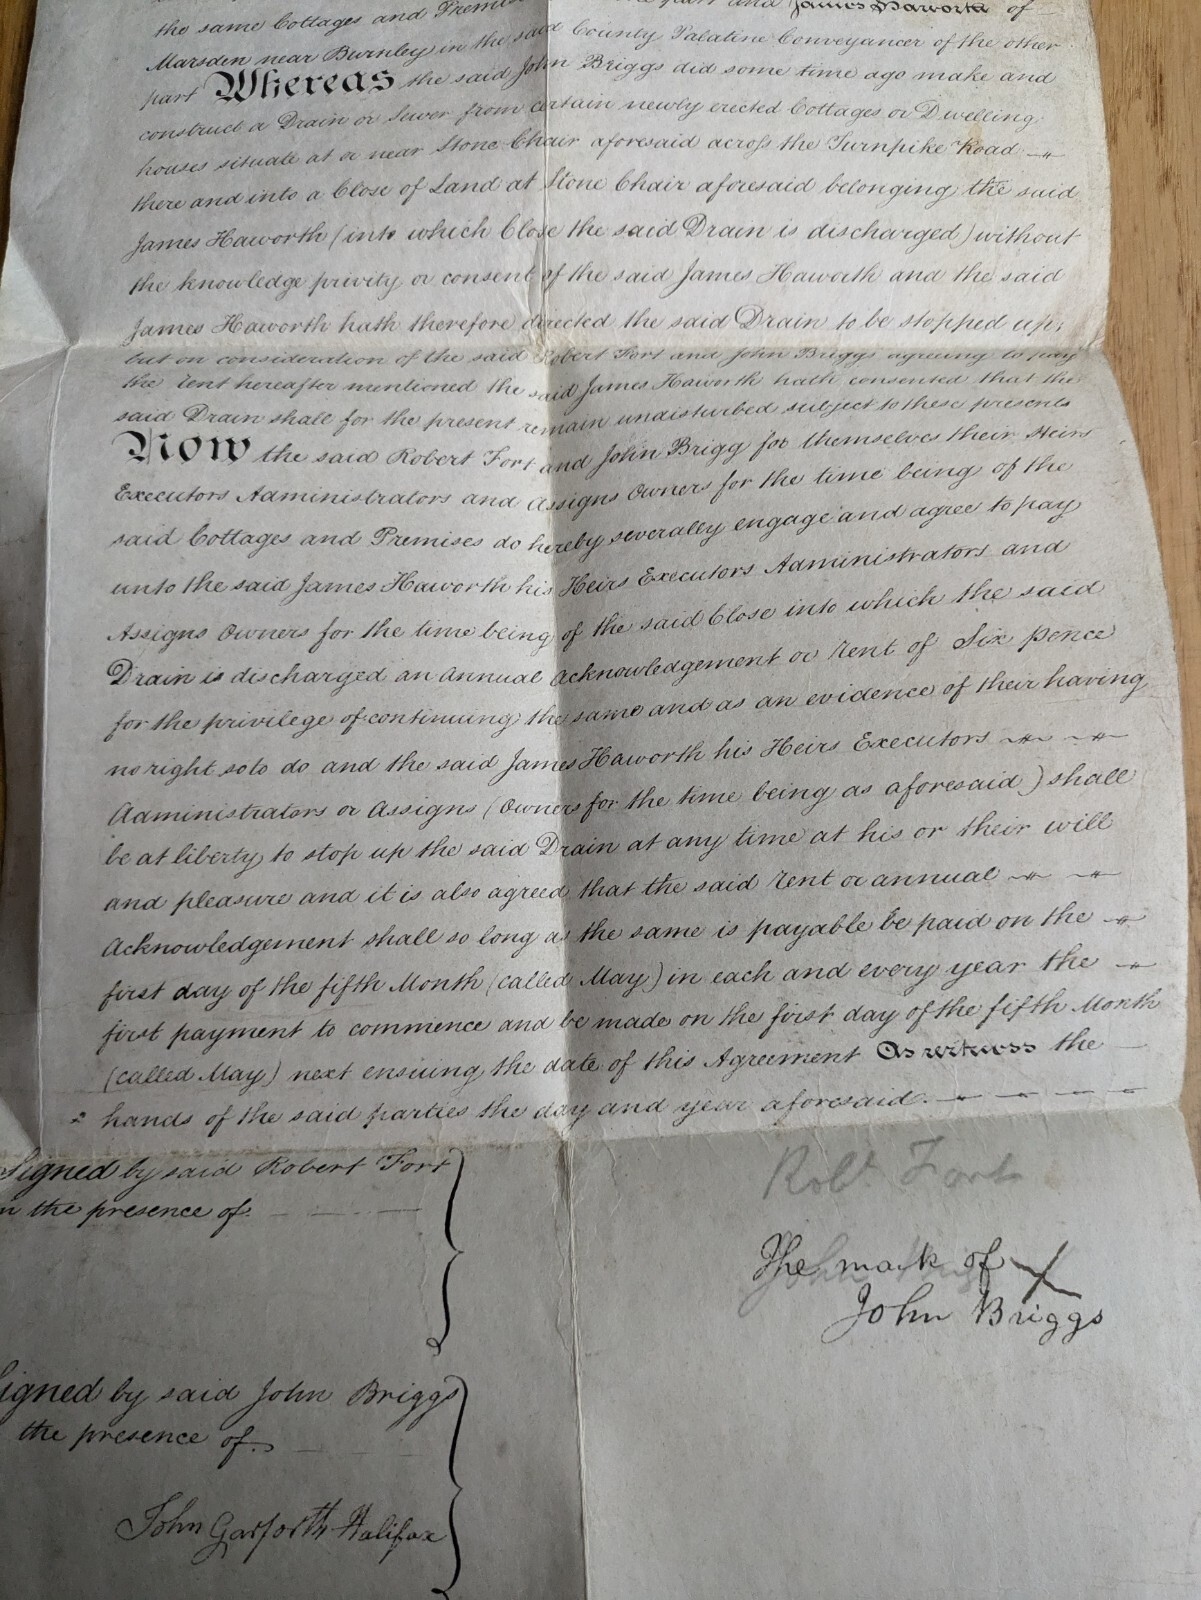 the same Cottages and Premises part and James Haworth of
Marsden near Burnley in the said County Palatine Conveyancer of the other
part Whereas the said John Briggs did some time ago make and
construct a Drain or Sewer from certain newly erected Cottages or Dwelling
houses situate at or near Stone Chair aforesaid across the Turnpike Road
there and into a Close of Land at Stone Chair aforesaid belonging the said
James Haworth (into which Close the said Drain is discharged) without
the knowledge privity or consent of the said James Haworth and the said
James Haworth hath therefore directed the said Drain to be stopped up;
but on consideration of the said Robert Fort and John Briggs agreeing to pay
the rent hereafter mentioned the said James Haworth hath consented that the
said Drain shall for the present remain undisturbed subject to these presents
Now the said Robert Fort and John Brigg for themselves their Heirs
Executors Administrators and Assigns Owners for the time being of the
said Cottages and Premises do hereby severally engage and agree to pay
unto the said James Haworth his Heirs Executors Administrators and
Assigns Owners for the time being of the said Close into which the said
Drain is discharged an annual acknowledgement or rent of Six pence
for the privilege of continuing the same and as an evidence of their having
no right so to do and the said James Haworth his Heirs Executors
Administrators or Assigns (Owners for the time being as aforesaid) shall
be at liberty to stop up the said Drain at any time at his or their will
and pleasure and it is also agreed that the said rent or annual
acknowledgement shall so long as the same is payable be paid on the
first day of the fifth Month (called May) in each and every year the
first payment to commence and be made on the first day of the fifth Month
(called May) next ensuing the date of this Agreement As witness the
hands of the said parties the day and year aforesaid.
Signed by said Robert Fort
in the presence of
Robt. Fort
The mark of X
John Briggs
Signed by said John Briggs
the presence of
John Garforth Halifax